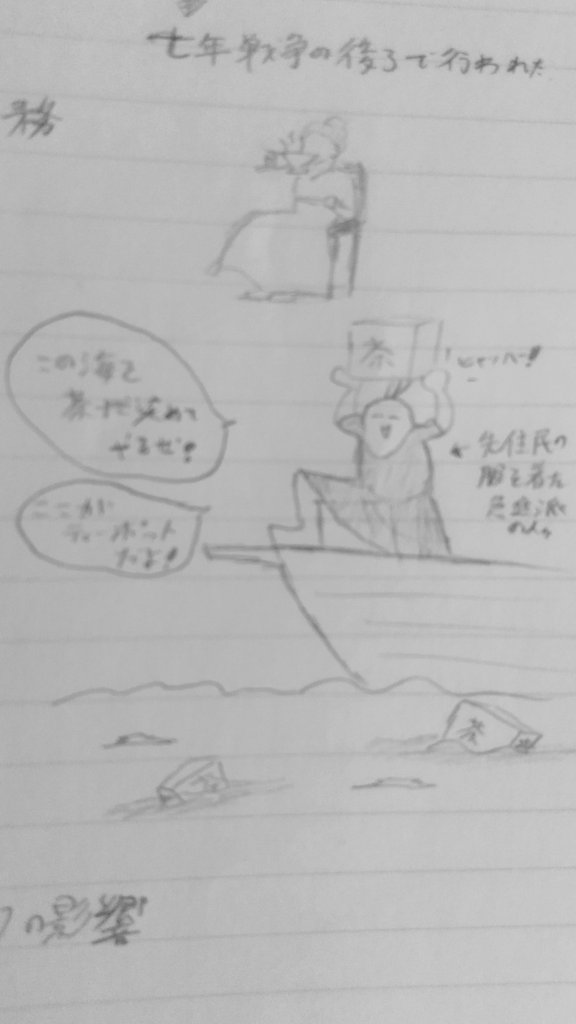 七年戦争の後ろで行われた
務
この海を
茶で染めて
やるぜ!
ここが
ティーポット
だよ!
茶
ヒャッハー!!
先住民の
服を着た
急進派
の人々
茶
の影響